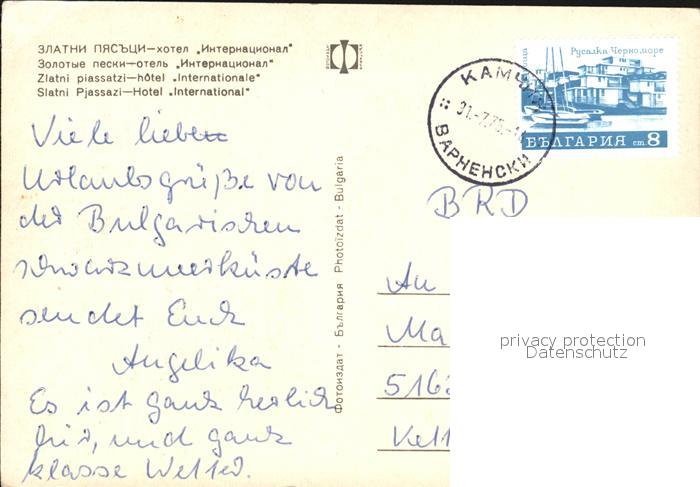 ЗЛАТНИ ПЯСЪЦИ—хотел „Интернационал"
Золотые пески—отель „Интернационал"
Zlatni piassatzi—hôtel „Internationale"
Slatni Pjassazi—Hotel „International"
Viele liebe
Urlaubsgrüße von
der Bulgarischen
schwarzmeerküste
sendet Euch
Angelika
Es ist ganz herlich
hier, und ganz
klasse Wetter.
Фотоиздат - България Photoizdat - Bulgaria
Русалка Черноморе
БЪЛГАРИЯ ст. 8
КАМЧ
31.-7.75.
ВАРНЕНСКИ
BRD
An
Ma
516
Kett
privacy protection
Datenschutz